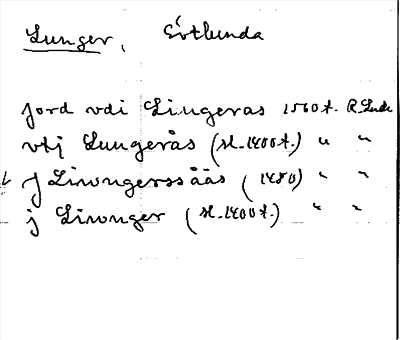 Lunger, Örtlunda
Jord vdi Liungeraas 1560 t. R Lade
vtj Lungerås (sl. 1400 t.) " "
J Liwngerssåås (1480) " "
j Liwnger (sl. 1400 t.) " "